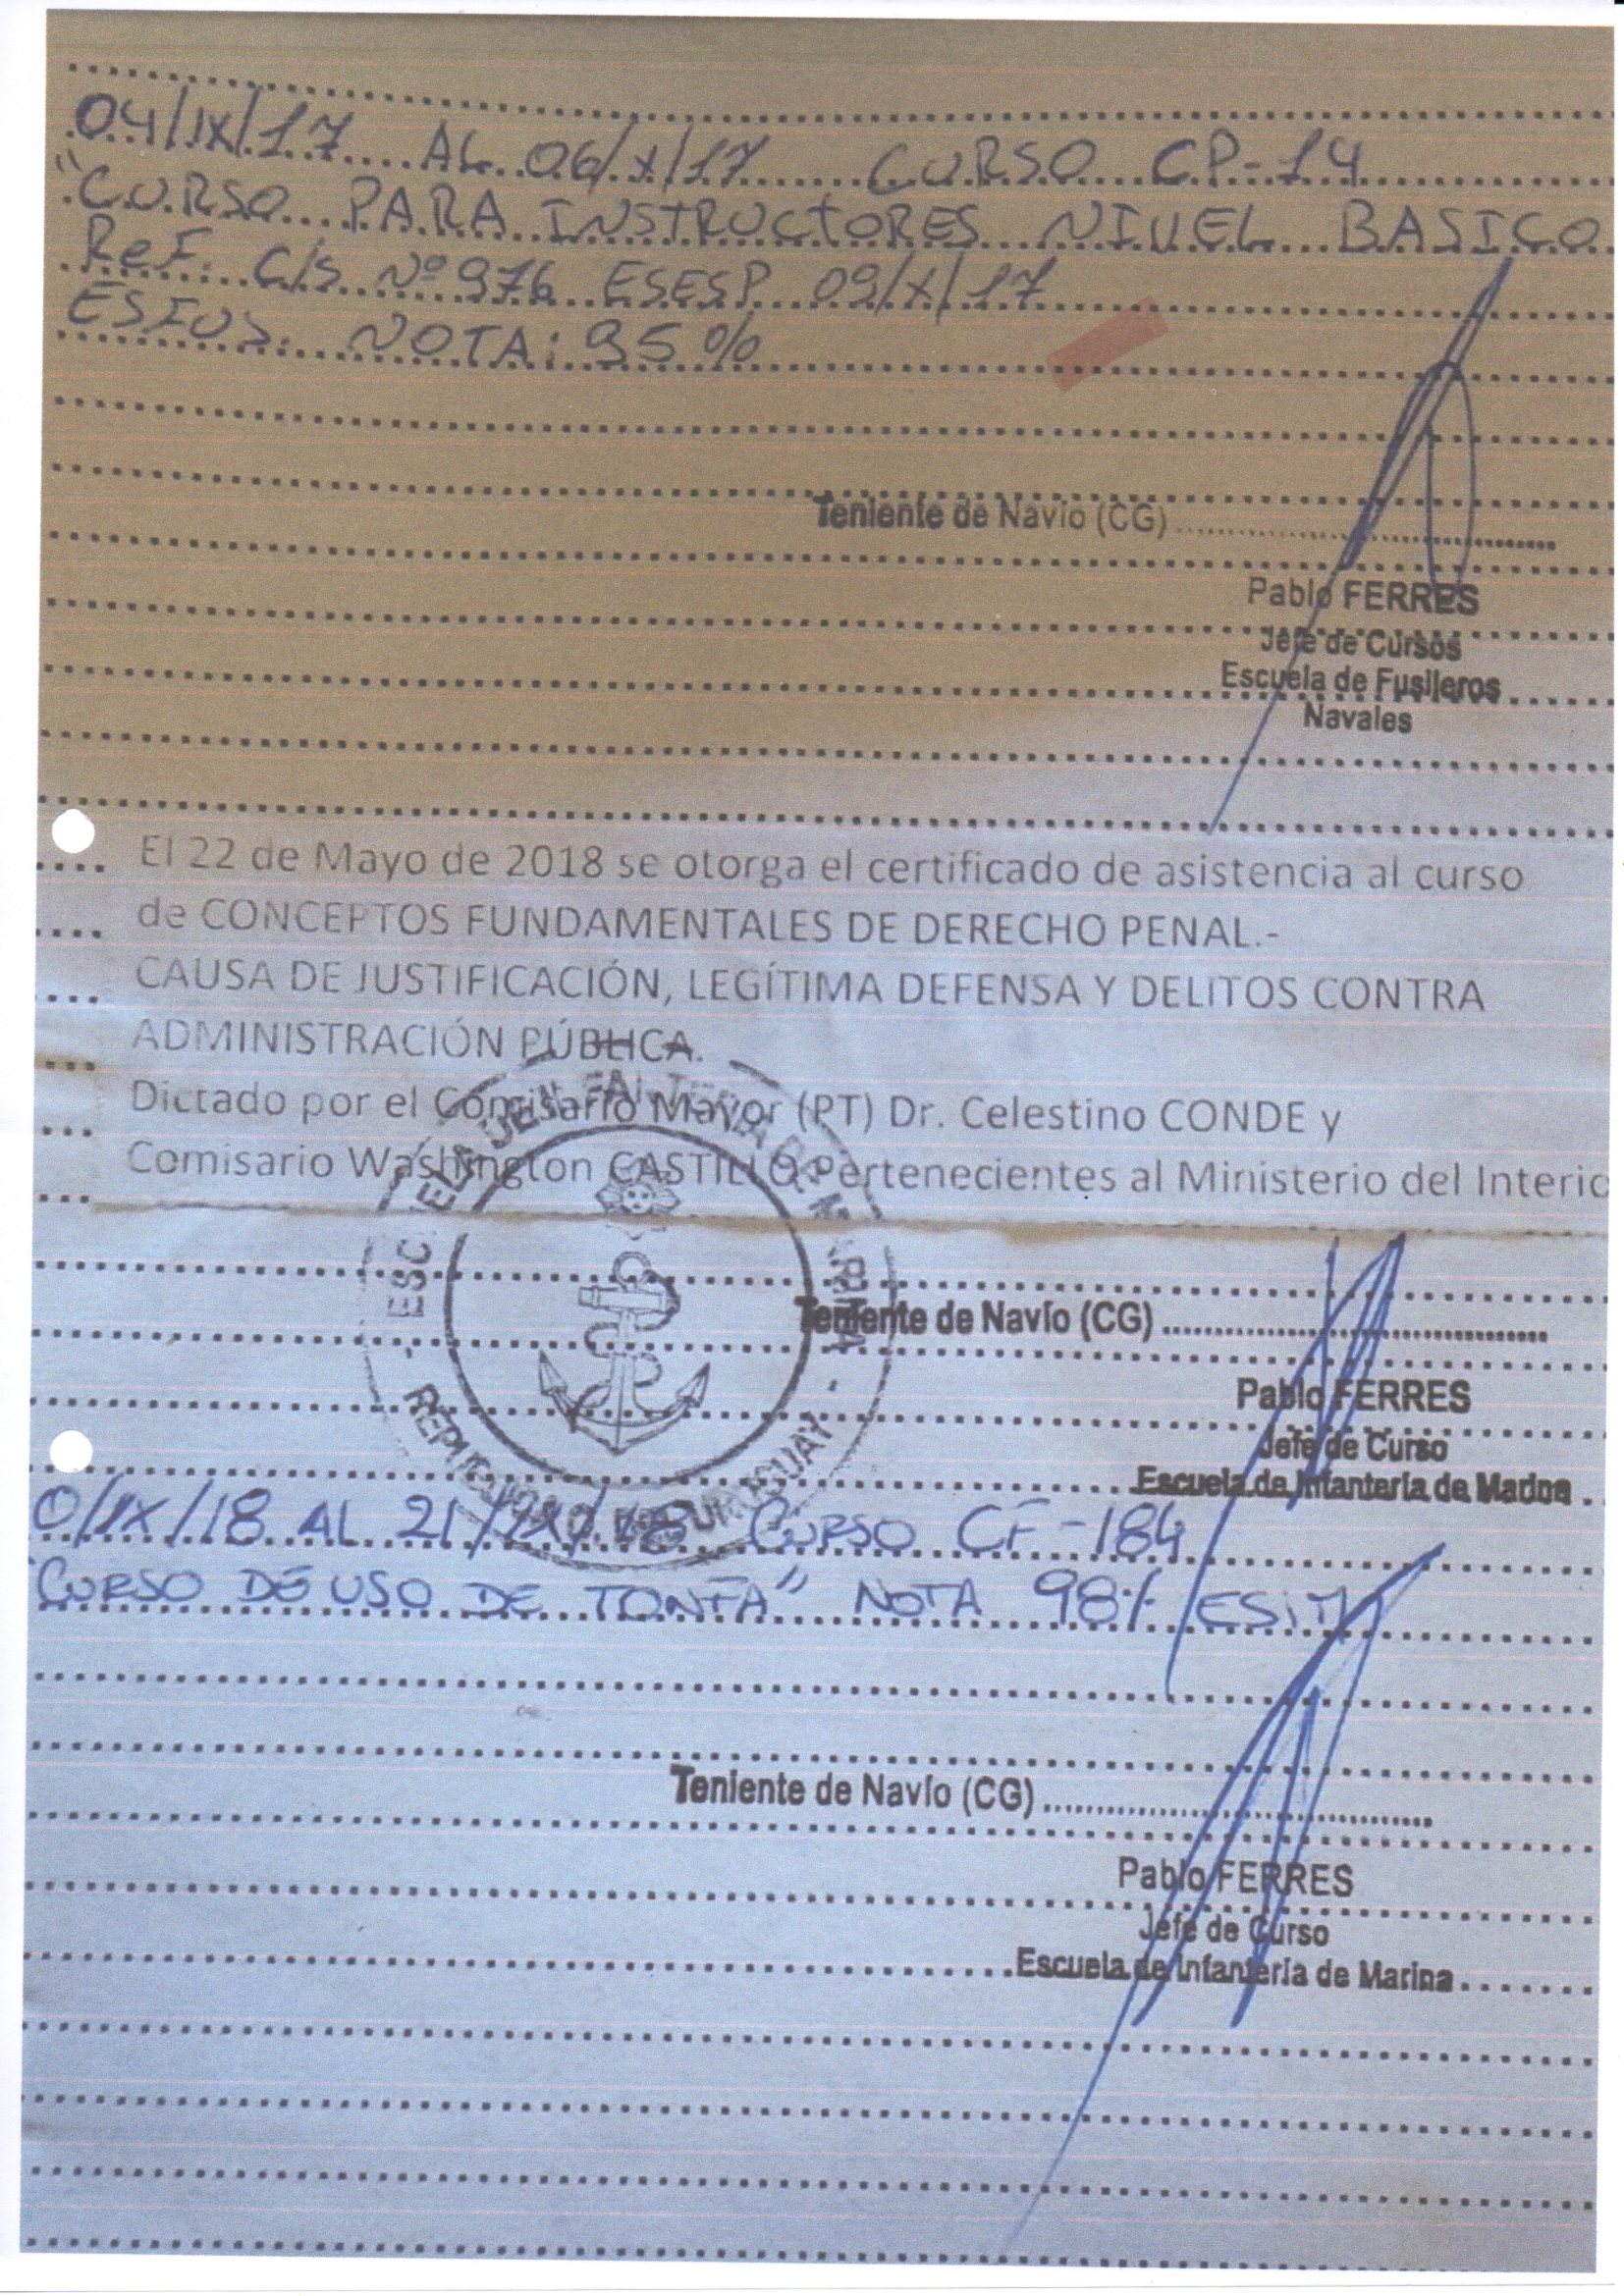 04/IX/17 AL 06/X/17 CURSO CP-14
"CURSO PARA INSTRUCTORES NIVEL BASICO
Ref. C/S Nº 976 ESESP 09/X/17
ESFUS. NOTA: 95%
Teniente de Navío (CG)
Pablo FERRES
Jefe de Cursos
Escuela de Fusileros
Navales
El 22 de Mayo de 2018 se otorga el certificado de asistencia al curso
de CONCEPTOS FUNDAMENTALES DE DERECHO PENAL.-
CAUSA DE JUSTIFICACIÓN, LEGÍTIMA DEFENSA Y DELITOS CONTRA
ADMINISTRACIÓN PÚBLICA.
Dictado por el Comisario Mayor (PT) Dr. Celestino CONDE y
Comisario Washington CASTILLO Pertenecientes al Ministerio del Interio
ESCUELA DE INFANTERIA DE MARINA
REPUBLICA O. DEL URUGUAY
Teniente de Navío (CG)
Pablo FERRES
Jefe de Curso
Escuela de Infantería de Marina
0/IX/18 AL 21/IX/18 CURSO CF-184
"CURSO DE USO DE TONFA" NOTA 98% ESIM
Teniente de Navío (CG)
Pablo FERRES
Jefe de Curso
Escuela de Infantería de Marina